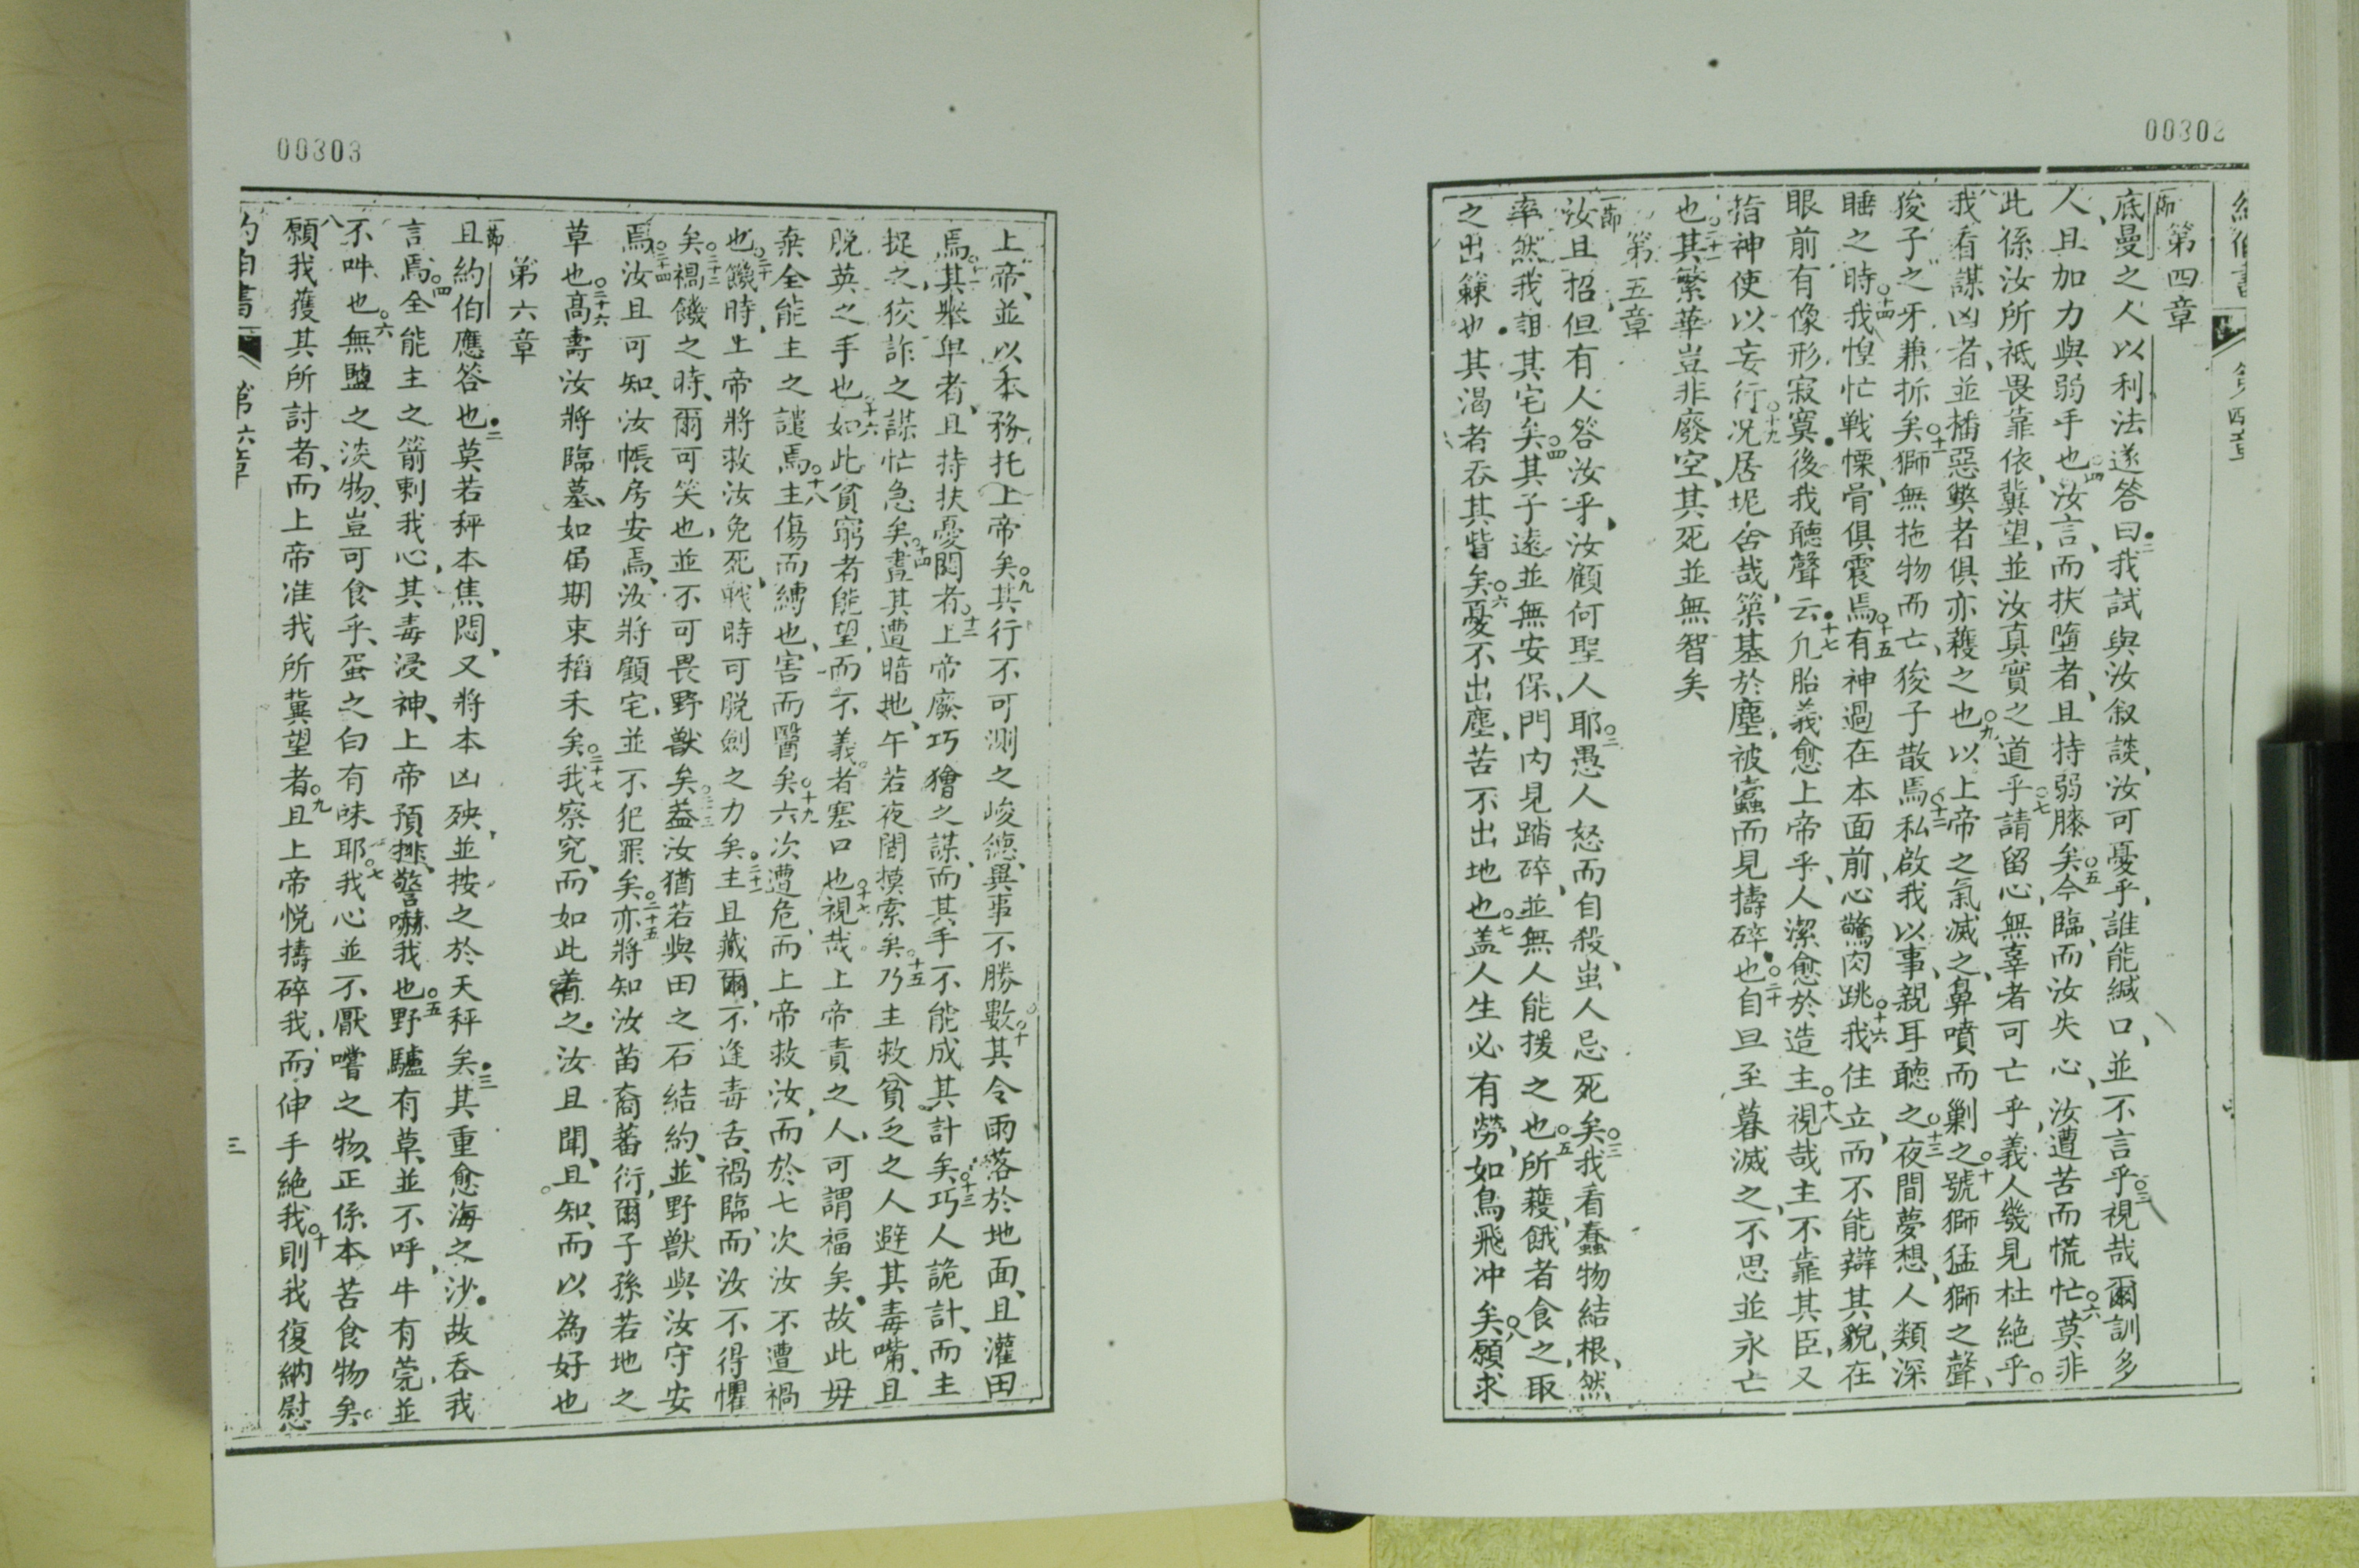 00302
第四章
底曼之人以利法遂答曰二我試與汝叙談汝可憂乎誰能緘口並不言乎三視哉爾訓多
人且加力與弱手也四汝言而扶墮者且持弱膝矣五今臨而汝失心汝遭苦而慌忙六莫非
此係汝所祗畏靠依冀望並汝真實之道乎七請留心無辜者可亡乎義人幾見杜絶乎
八我看謀凶者並播惡獘者俱亦穫之也九以上帝之氣滅之鼻噴而剿之十號獅猛獅之聲
狻子之牙兼折矣十一獅無拖物而亡狻子散焉十二私啟我以事親耳聽之十三夜間夢想人類深
睡之時十四我惶忙戰慄骨俱震焉十五有神過在本面前心驚肉跳十六我住立而不能辯其貌在
眼前有像形寂寞後我聽聲云十七凢胎義愈上帝乎人潔愈於造主十八視哉主不靠其臣又
指神使以妄行十九况居坭舍哉築基於塵被蠹而見擣碎也二十自旦至暮滅之不思並永亡
也二十一其繁華豈非廢空其死並無智矣
第五章
一節汝且招但有人答汝乎汝顧何聖人耶二愚人怒而自殺蚩人忌死矣三我看蠢物結根然
率然我詛其宅矣四其子遠並無安保門內見踏碎並無人能援之也五所穫餓者食之取
之出簶也其渴者吞其貲矣六憂不出塵苦不出地也七盖人生必有勞如鳥飛冲矣八願求
00303
上帝並以本務托上帝矣九其行不可測之峻德異事不勝數十其令雨落於地面且灌田
焉十一其舉卑者且持扶憂悶者十二上帝廢巧獪之謀而其手不能成其計矣十三巧人詭計而主
捉之狡詐之謀忙急矣十四晝其遭暗地午若夜間摸索矣十五乃主救貧乏之人避其毒嘴且
脫英之手也十六如此貧窮者能望而不義者塞口也十七視哉上帝責之人可謂福矣故此毋
棄全能主之譴焉十八主傷而縛也害而醫矣十九六次遭危而上帝救汝而於七次汝不遭禍
也二十饑時上帝將救汝免死戰時可脫劍之力矣二十一主且藏爾不逢毒舌禍臨而汝不得懼
矣二十二禍饑之時爾可笑也並不可畏野獸矣二十三葢汝猶若與田之石結約並野獸與汝守安
焉二十四汝且可知汝帳房安焉汝將顧宅並不犯罪矣二十五亦將知汝苗裔蕃衍爾子孫若地之
草也二十六高壽汝將臨墓如屆期束稻禾矣二十七我察究而如此着之汝且聞且知而以為好也
第六章
一節且約伯應答也二莫若秤本焦悶又將本凶殃並按之於天秤矣三其重愈海之沙故吞我
言焉四全能主之箭刺我心其毒浸神上帝預排警嚇我也五野驢有草並不呼牛有莞並
不吽也六無鹽之淡物豈可食乎蛋之白有味耶七我心並不厭嚐之物正係本苦食物矣
八願我獲其所討者而上帝准我所冀望者九且上帝悅擣碎我而伸手絶我十則我復納慰
約伯書 第六章
三